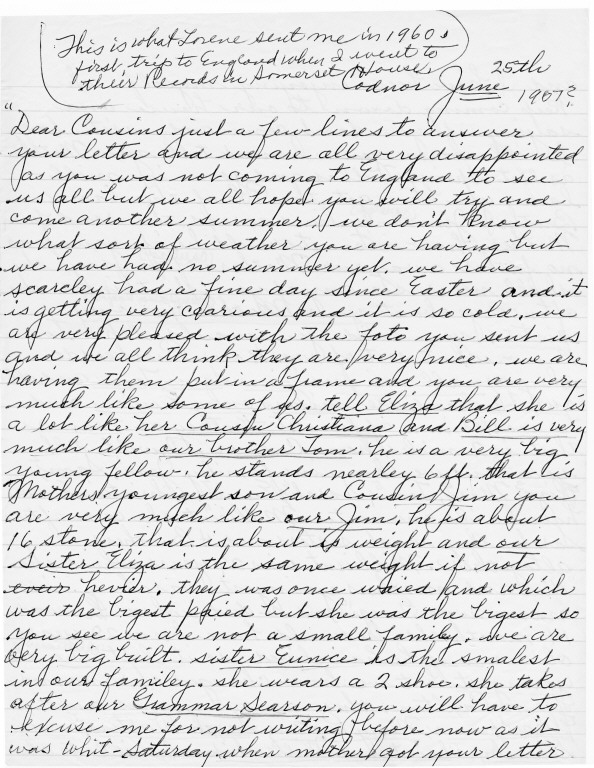 This is what Lorene sent me in 1960s
first trip to England when I went to
their Records in Somerset House
Codnor June 25th
1907?
"Dear Cousins just a few lines to answer
your letter and we are all very disappointed
as you was not coming to England to see
us all but we all hope you will try and
come another summer, we don't know
what sort of weather you are having but
we have had no summer yet. we have
scarcley had a fine day since Easter and it
is getting very and it is so cold. we
are very pleased with the foto you sent us
and we all think they are very nice. we are
having them put in a frame and you are very
much like some of us. tell Eliza that she is
a lot like her Cousin Christiana and Bill is very
much like our brother Tom. he is a very big
young fellow. he stands nearley 6 ft. that is
Mothers youngest son and Cousin Jim you
are very much like our Jim. he is about
16 stone. that is about is weight and our
Sister Eliza is the same weight if not
hevier. they was once waied and which
was the bigest paied but she was the bigest so
you see we are not a small family. we are
very big built. sister Eunice is the smalest
in our familey. she wears a 2 shoe. she takes
after our Grammar Searson. you will have to
excuse me for not writing before now as it
was Whit-Saturday when mother got your letter